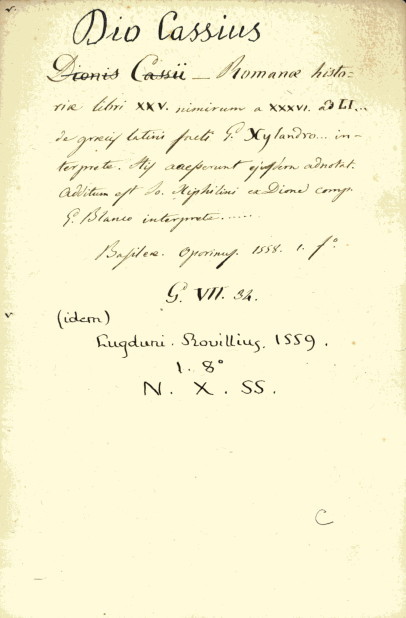 Dio Cassius
Dionis Cassii — Romanæ histo-
riæ libri XXV. nimirum a XXXVI. ad LI...
de græcis latini facti G. Xylandro... in-
terprete. His accesserunt ejusdem adnotat.
Additum est Jo. Xiphilini ex Dione comp.
G. Blanco interprete......
Basileæ. Oporinus. 1558. 1. fº.
G. VII. 34.
(idem)
Lugduni. Rovillius. 1559.
1. 8º
N. X. SS.
C